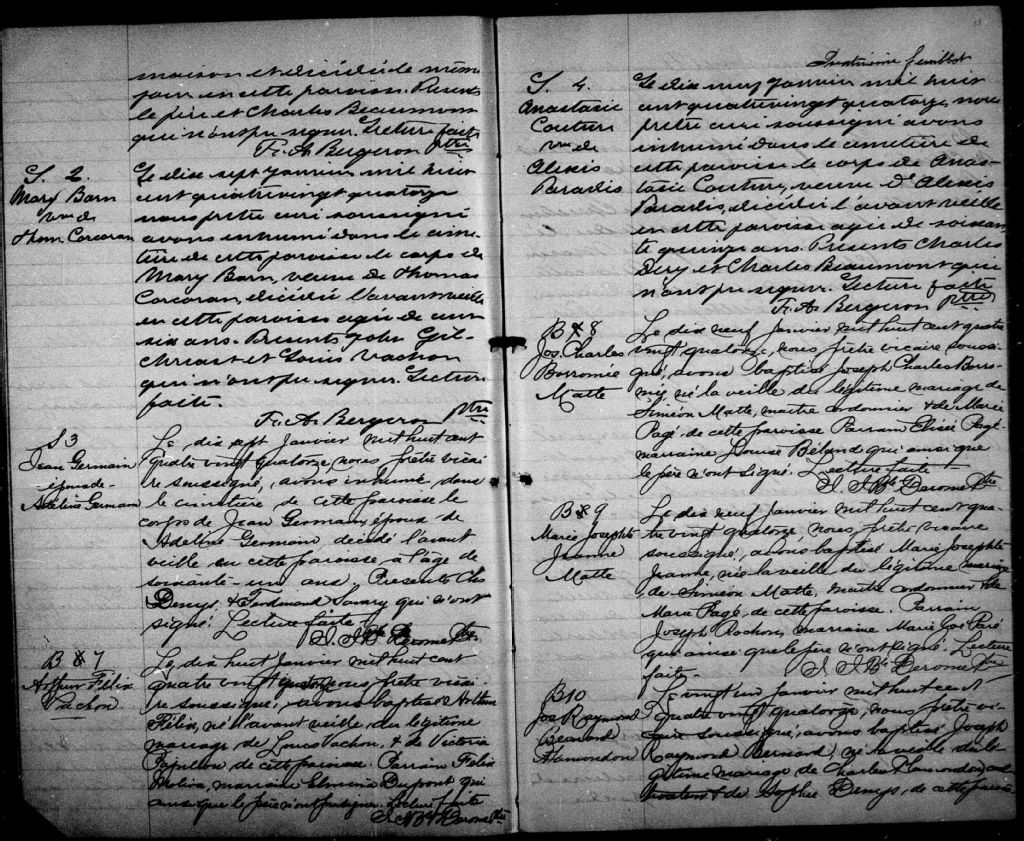 maison et décédé le même
jour en cette paroisse. Présents
le père et Charles Beaumont
qui n'ont pu signer. Lecture faite
F. A. Bergeron ptre
S. 2.
Mary Barn
vve de
Thom Corcoran
Le dix sept Janvier mil huit
cent quatrevingt quatorze
nous prêtre curé soussigné
avons inhumé dans le cime-
tière de cette paroisse le corps de
Mary Barn, veuve de Thomas
Corcoran, décédée l'avant veille
en cette paroisse agée de cent
six ans. Présents John Gil-
christ et Louis Vachon
qui n'ont pu signer. Lecture
faite.
F. A. Bergeron ptre
S 3
Jean Germain
époux de
Adeline Germain
Le dix sept Janvier mil huit cent
quatre vingt quatorze, nous prêtre vicai-
re soussigné, avons inhumé, dans
le cimetière de cette paroisse le
corps de Jean Germain, époux de
Adeline Germain décédé l'avant
veille en cette paroisse, à l'âge de
soixante-un ans. Présents Chs
Denys & Ferdinand Savary qui n'ont
signé. Lecture faite
J. J. Bte Derome Ptre.
B 7
Arthur Félix
Vachon
Le dix huit Janvier mil huit cent
quatre vingt quatorze nous prêtre vicai-
re soussigné, avons baptisé Arthur
Félix, né l'avant veille du légitime
mariage de Louis Vachon, & de Victoria
Papillon de cette paroisse. Parrain Félix
marraine Elmina Dupont qui
ainsi que le père n'ont pu signer. Lecture faite
J. J. Bte Derome Ptre
feuillet
S. 4.
Anastasie
Couture
vve de
Alexis
Paradis
Le dix neuf Janvier mil huit
cent quatrevingt quatorze nous
prêtre curé soussigné avons
inhumé dans le cimetière de
cette paroisse le corps de Anas-
tasie Couture, veuve d'Alexis
Paradis, décédée l'avant veille
en cette paroisse agée de soixan-
te quinze ans. Présents Charles
Dery et Charles Beaumont qui
n'ont pu signer. Lecture faite
F. A. Bergeron ptre
B 8
Jos. Charles
Borromée
Matte
Le dix neuf Janvier mil huit cent quatre
vingt quatorze, nous prêtre vicaire soussi-
gné, avons baptisé Joseph Charles Borro-
mée, né la veille du légitime mariage de
Siméon Matte, maître cordonnier & de Marie
Pagé de cette paroisse Parrain Elisée Pagé
marraine Louise Béland qui ainsi que
le père n'ont signé. Lecture faite
J. J. Bte Derome Ptre
B 9
Marie Josephte
Jeanne
Matte
Le dix neuf Janvier mil huit cent qua-
tre vingt quatorze, nous, prêtre vicaire
soussigné, avons baptisé Marie Josephte
Jeanne, née la veille du légitime mariage
de Siméon Matte, maître cordonnier & de
Marie Pagé, de cette paroisse. Parrain
Joseph Rochon, marraine Marie Jos. Paré
qui ainsi que le père n'ont signé. Lecture
faite.
J. J. Bte Derome Ptre
B10
Jos Raymond
Bernard
Hamondon
Le vingt un Janvier mil huit cent
quatre vingt quatorze, nous prêtre vi-
caire soussigné, avons baptisé Joseph
Raymond Bernard, né la veille du lé-
gitime mariage de Charles Hamondon, cul-
tivateur & de Sophie Denys, de cette paroisse